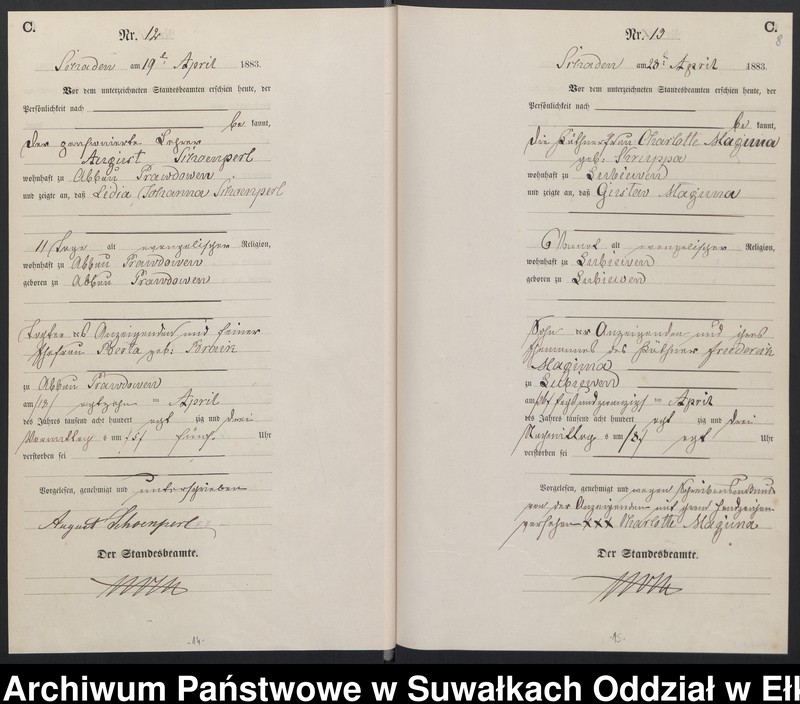 C.
Nr. 12
am 19t April 1883.
Vor dem unterzeichneten Standesbeamten erschien heute, der
Persönlichkeit nach
be kannt,
der pensionierte Lehrer
August Schoenperl
wohnhaft zu Abbau Prawdowen
und zeigte an, daß Lidia, Johanna Schoenperl
11 Tage alt evangelischer Religion,
wohnhaft zu Abbau Prawdowen
geboren zu Abbau Prawdowen
Tochter des Anzeigenden und seiner
Ehefrau geb:
zu Abbau Prawdowen
am /18/ achtzehn ten April
des Jahres tausend acht hundert acht zig und drei
Vormittag s um /5/ fünf Uhr
verstorben sei
Vorgelesen, genehmigt und unterschrieben
August Schoenperl
Der Standesbeamte.
-14-
C.
8
Nr. 13
am 28t April 1883.
Vor dem unterzeichneten Standesbeamten erschien heute, der
Persönlichkeit nach
be kannt,
die Käthnerfrau Charlotte Maginna
geb: Skruppa
wohnhaft zu Lubiewen
und zeigte an, daß Gustav Maginna
6 Monat alt evangelischer Religion,
wohnhaft zu Lubiewen
geboren zu Lubiewen
Sohn der Anzeigenden und ihres
Ehemannes des Käthner Friederich
Maginna
zu Lubiewen
am sechsundzwanzig ten April
des Jahres tausend acht hundert acht zig und drei
Nachmittag s um /8/ acht Uhr
verstorben sei
Vorgelesen, genehmigt und wegen
von der Anzeigenden mit ihrem Handzeichen
versehen XXX Charlotte Maginna
Der Standesbeamte.
-15-
Archiwum Państwowe w Suwałkach Oddział w Ełk